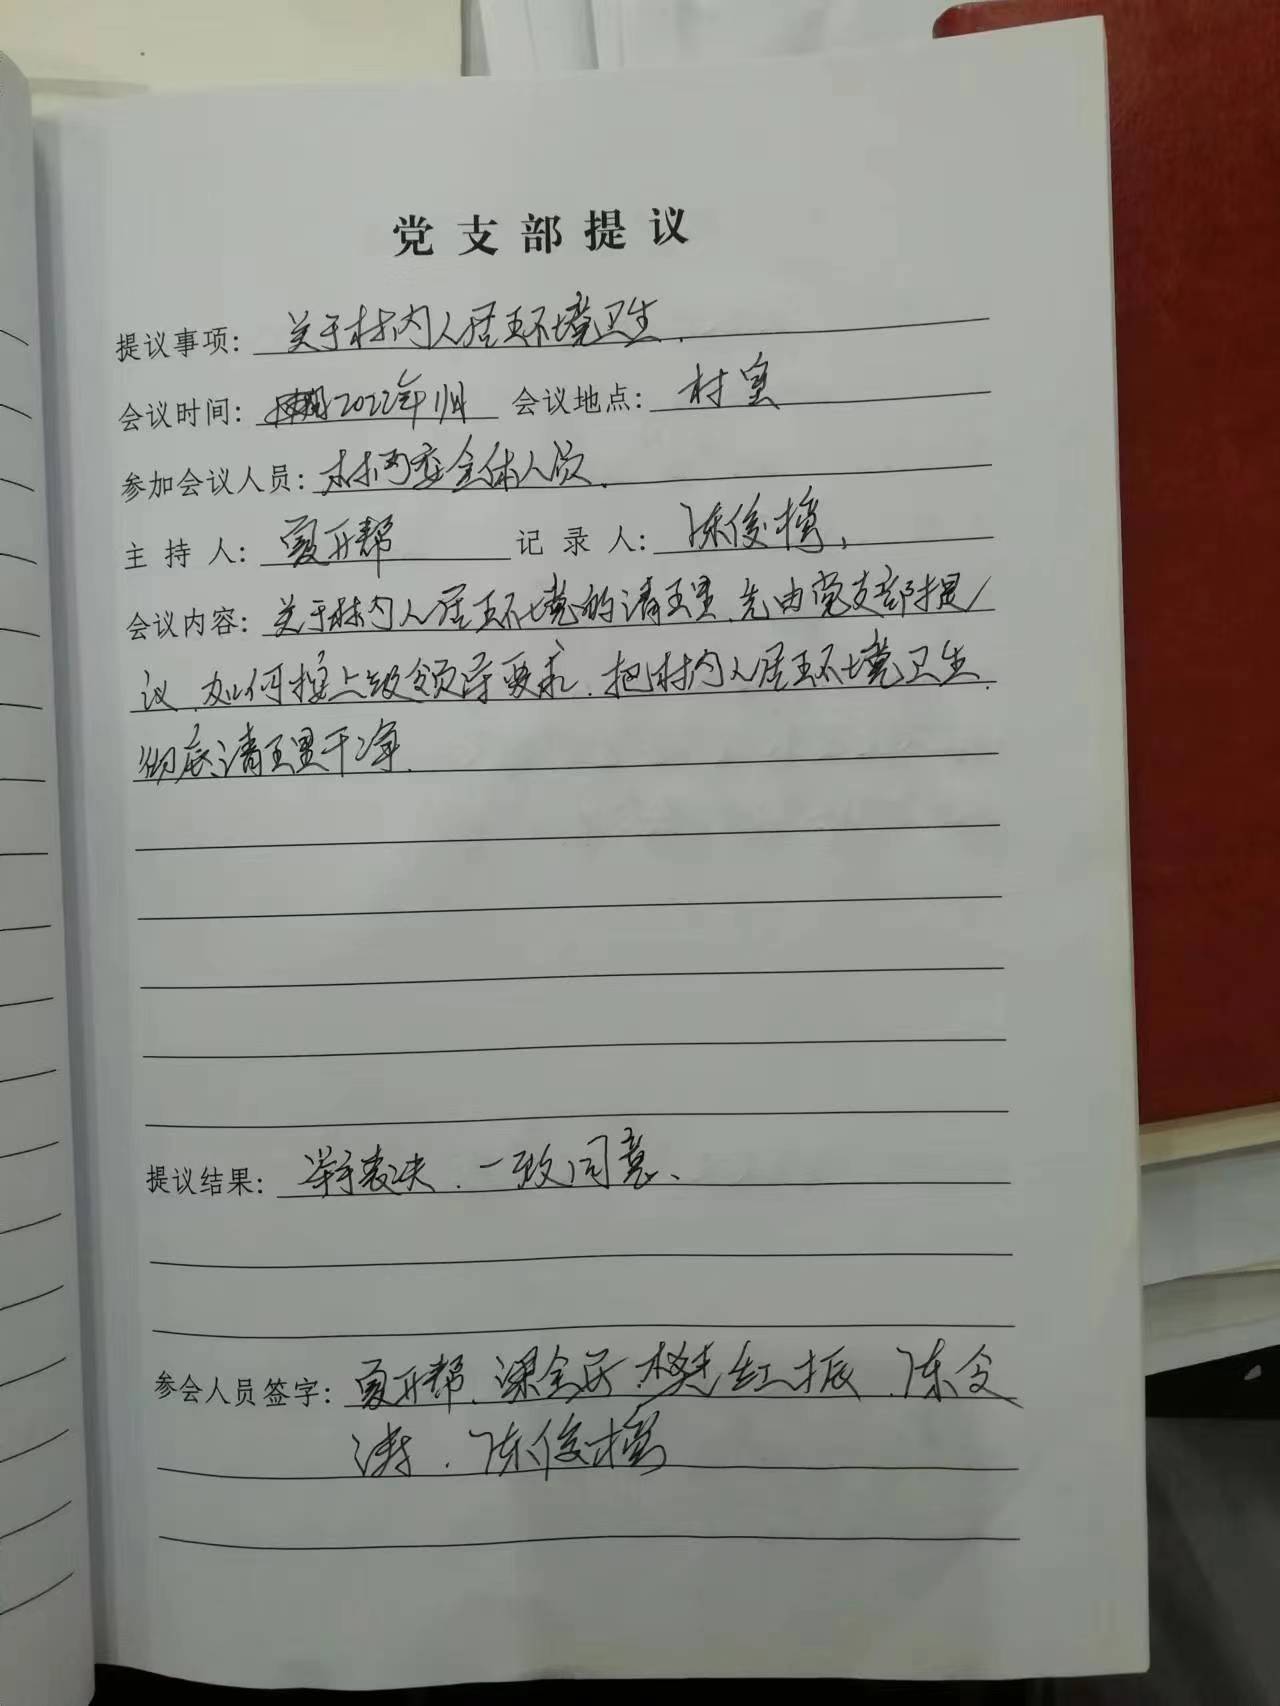 党支部提议
提议事项：关于村内人居环境卫生.
会议时间：2022年1月 会议地点：村室
参加会议人员：村两委全体人员.
主持人：夏开帮 记录人：陈俊搒
会议内容：关于村内人居环境的清理.先由党支部提
议.如何按上级领导要求.把村内人居环境卫生.
彻底清理干净.
提议结果：举手表决.一致同意、
参会人员签字：夏开帮.梁全民.樊红振.陈文
涛.陈俊